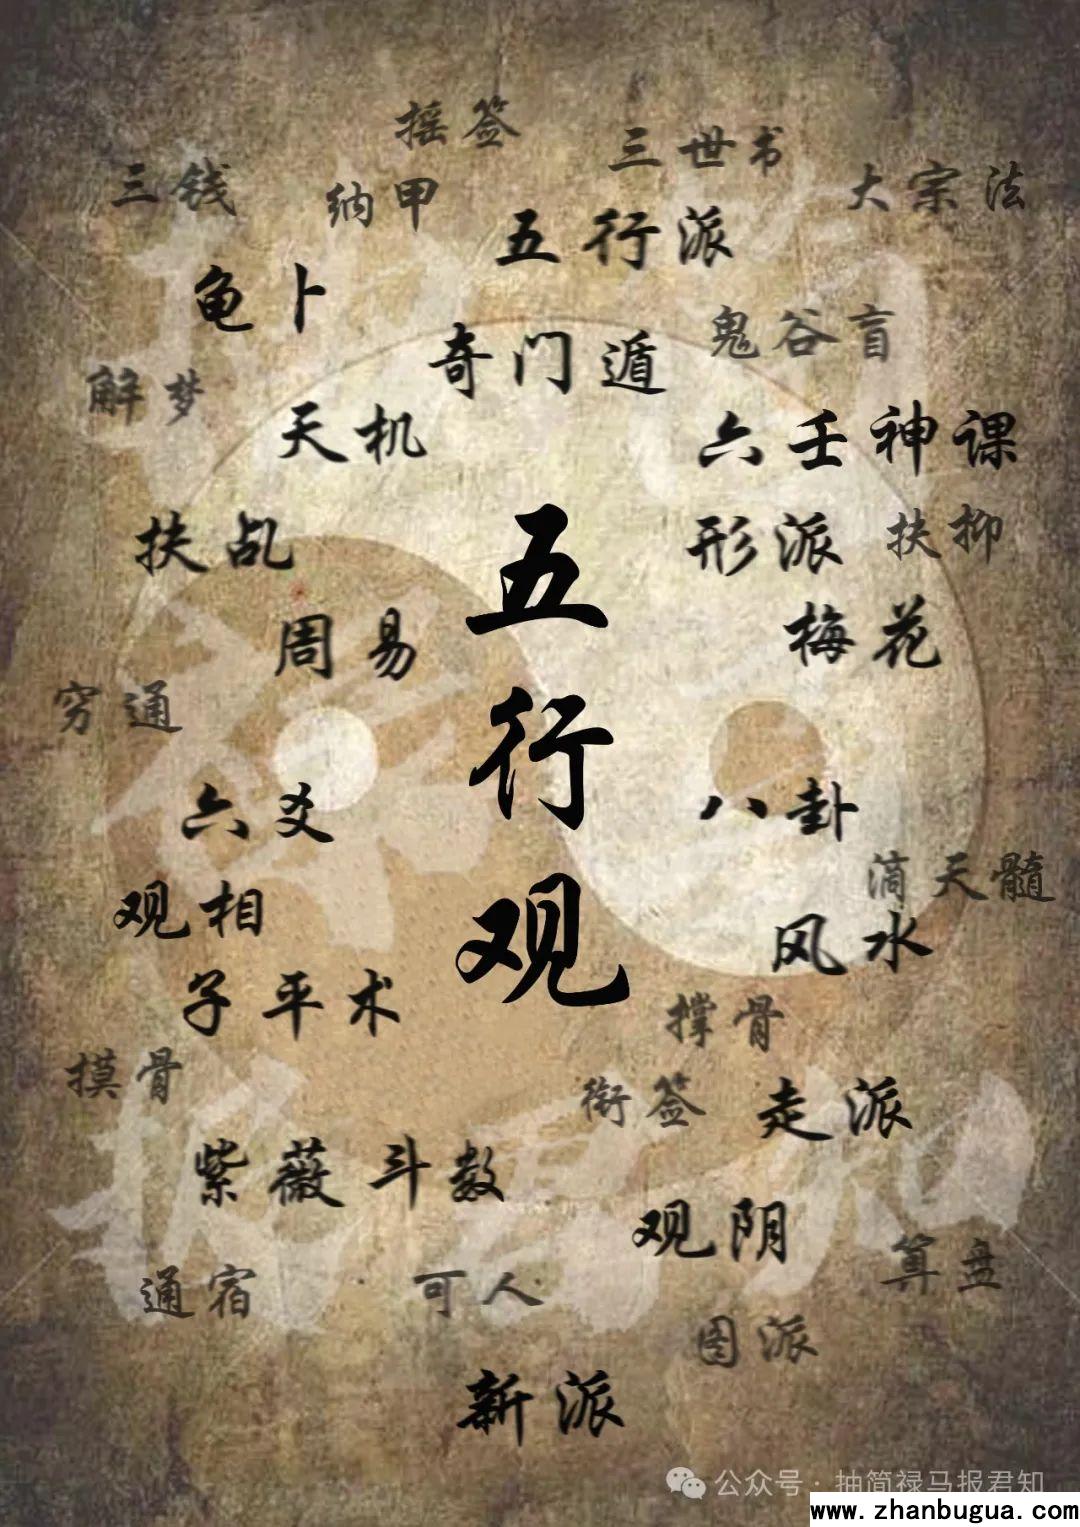 摇签
三世书
三钱
纳甲
大宗法
五行派
龟卜
鬼谷盲
奇门遁
解梦
天机
六壬神课
扶乩
形派
扶抑
五行观
周易
梅花
穷通
六爻
八卦
滴天髓
观相
风水
子平术
撑骨
摸骨
衔签
走派
紫薇斗数
观阴
算盘
通宿
可人
图派
新派
抽简禄马报君知
公众号·抽简禄马报君知
www.zhanbugua.com